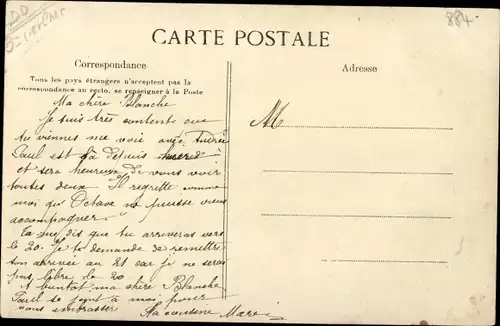 DD
884.
CARTE POSTALE
Correspondance
Tous les pays étrangers n'acceptent pas la
correspondance au recto, se renseigner à la Poste
Adresse
M
Ma chère Blanche
Je suis très contente que
tu viennes me voir avec Andrée
Paul est là depuis
et sera heureux de vous voir
toutes deux Il regrette comme
moi qu'Octave ne puisse vous
accompagner
Tu me dis que tu arriveras vers
le 20. Je te demande de remettre
ton arrivée au 21 car je ne serai
pas libre le 20
A bientôt ma chère Blanche
Paul se joint à moi pour
vous embrasser
Ta cousine Marie